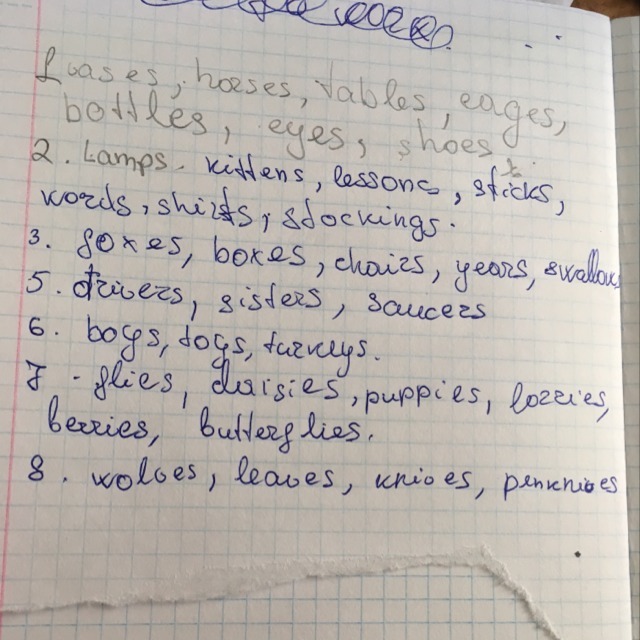 horses, tables, cages,
bottles, eyes, shoes
2. Lamps. kittens, lessons, sticks,
words, shirts, stockings.
3. foxes, boxes, chairs, years, swallows
5. drivers, sisters, saucers
6. boys, toys, turkeys.
7 - flies, daisies, puppies, lorries,
berries, butterflies.
8. wolves, leaves, knives, penknives